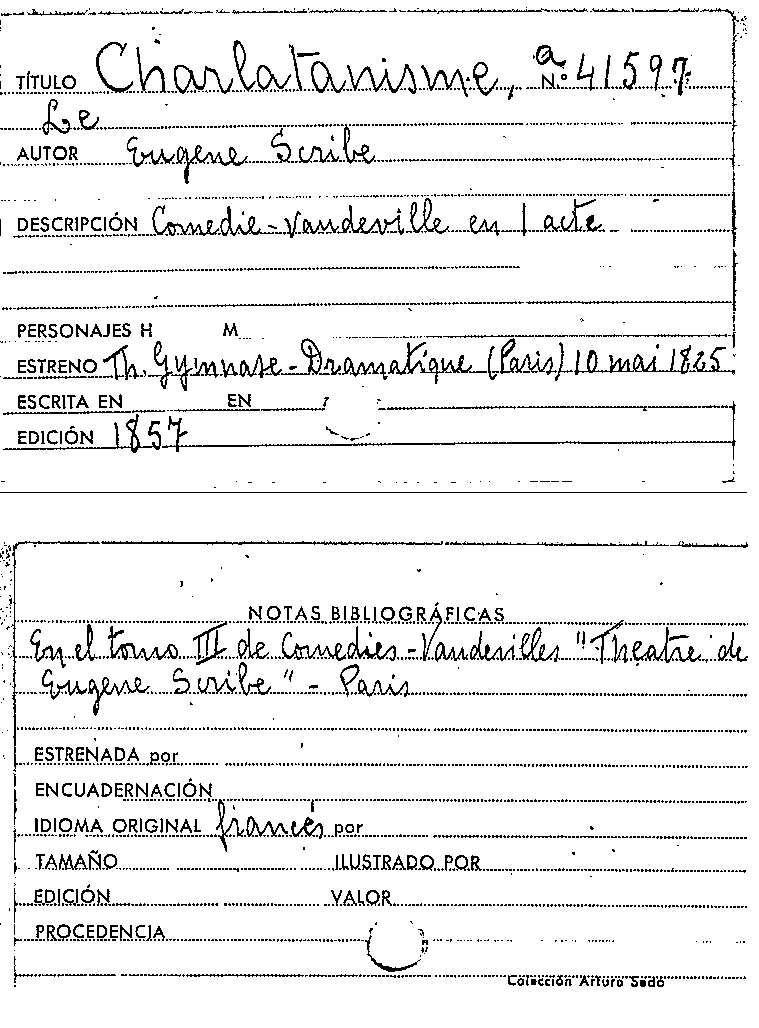 TÍTULO Charlatanisme, a N.º 41597
Le
AUTOR Eugene Scribe
DESCRIPCIÓN Comedie-Vaudeville en 1 acte
PERSONAJES H M
ESTRENO Th. Gymnase-Dramatique (Paris) 10 mai 1825
ESCRITA EN EN
EDICIÓN 1857
NOTAS BIBLIOGRÁFICAS
En el tomo III de Comedies-Vaudevilles "Theatre de
Eugene Scribe" - Paris
ESTRENADA por
ENCUADERNACIÓN
IDIOMA ORIGINAL francés por
TAMAÑO ILUSTRADO POR
EDICIÓN VALOR
PROCEDENCIA
Colección Arturo Sedó